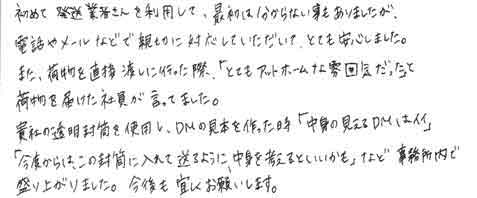 初めて発送業者さんを利用して、最初は分からない事もありましたが、
電話やメールなどで親切に対応していただいて、とても安心しました。
また、荷物を直接渡しに行った際、「とてもアットホームな雰囲気だった」と
荷物を届けた社員が言ってました。
貴社の透明封筒を使用し、DMの見本を作った時「中身の見えるDMはイイ」
「今度からは、この封筒に入れて送るように、中身を考えるといいかも」など事務所内で
盛り上がりました。今後も宜しくお願いします。